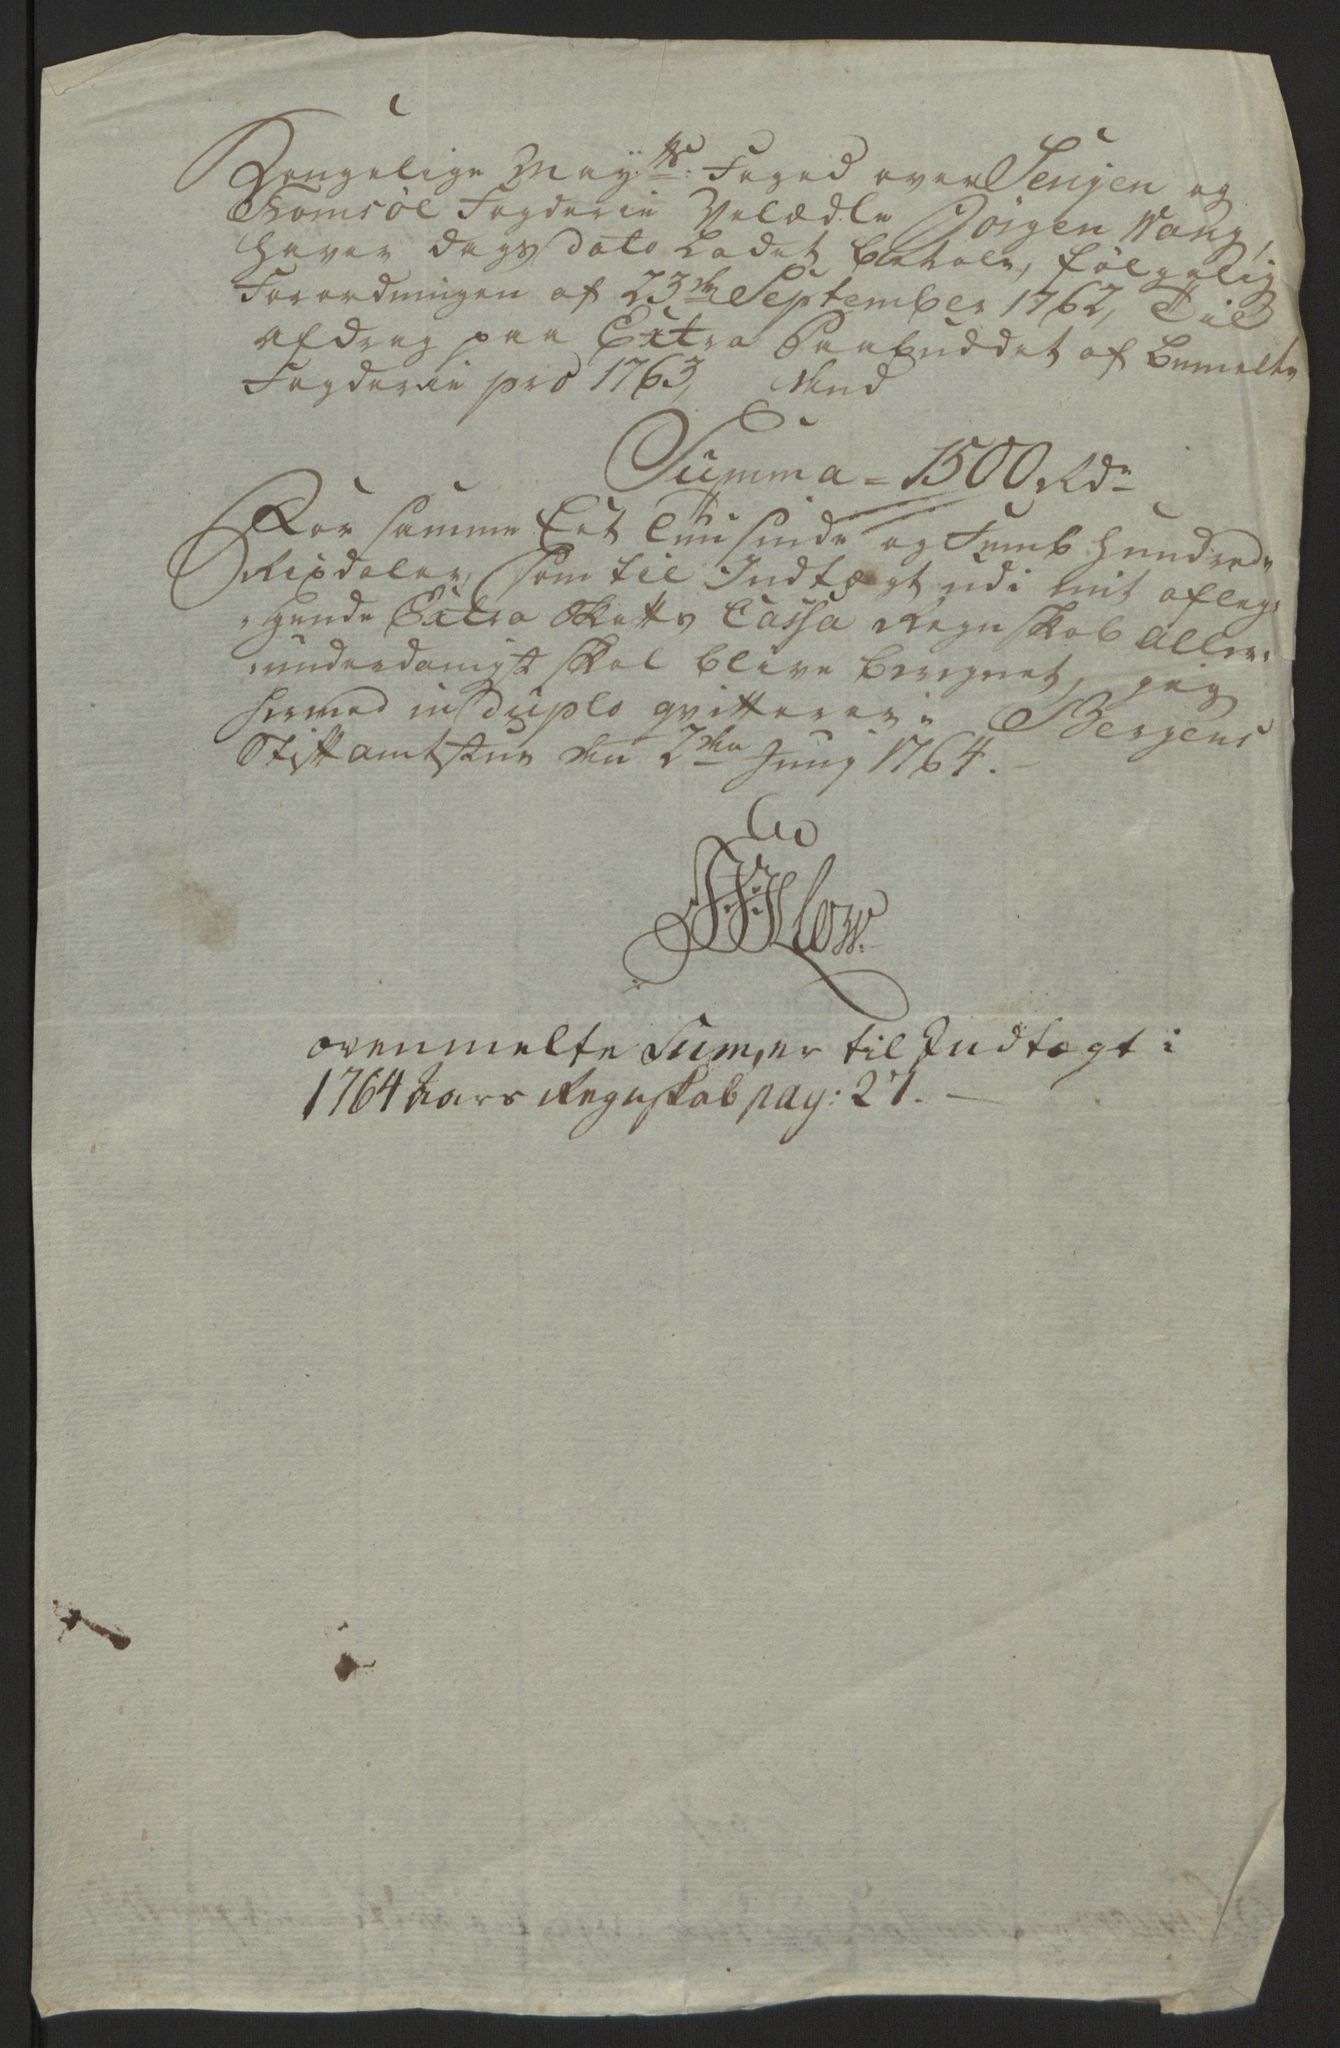 Kongelige May:tts Foged over Senjen og
Tromsöe Fogderie Velædle Jörgen Wang,
haver dags dato ladet betale, fölgelig
Forordningen af 23de September 1762, Til
Afdrag paa Extra Paabuddet af bemelte
Fogderie pro 1763, Med
Summa = 1500 Rdr
For samme Eet Tuusinde og Femb hundrede
Rixdaler, som til Indtægt udi mit aflæg-
-gende Extra Skatts Cassa Regnskab aller-
-underdanigst skal blive beregnet, jeg
hermed in duplo qvitterer. Bergens
Stiftamtstue den 7de Junij 1764.
Low.
ovenmelte Sum, er til Indtægt i
1764 Aars Regnskab pag: 27.